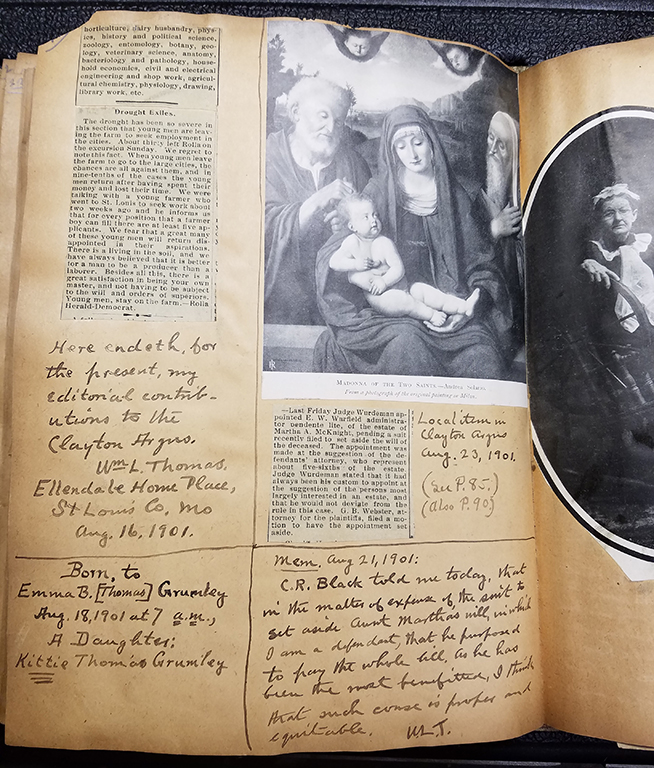 horticulture, dairy husbandry, phys-
ics, history and political science,
zoology, entomology, botany, geo-
logy, veterinary science, anatomy,
bacteriology and pathology, house-
hold economics, civil and electrical
engineering and shop work, agricul-
tural chemistry, physiology, drawing,
library work, etc.
Drought Exiles.
The drought has been so severe in
this section that young men are leav-
ing the farm to seek employment in
the cities. About thirty left Rolla on
the excursion Sunday. We regret to
note this fact. When young men leave
the farm to go to the large cities, the
chances are all against them, and in
nine-tenths of the cases the young
men return after having spent their
money and lost their time. We were
talking with a young farmer who
went to St. Louis to seek work about
two weeks ago and he informs us
that for every position that a farmer
boy can fill there are at least five ap-
plicants. We fear that a great many
of these young men will return dis-
appointed in their aspirations.
There is a living in the soil, and we
have always believed that it is better
for a man to be a producer than a
laborer. Besides all this, there is a
great satisfaction in being your own
master, and not having to be subject
to the will and orders of superiors.
Young men, stay on the farm.—Rolla
Herald-Democrat.
Here endeth, for
the present, my
editorial contrib-
utions to the
Clayton Argus.
Wm L. Thomas,
Ellendale Home Place,
St Louis Co, Mo
Aug. 16, 1901.
Born, to
Emma B. [Thomas] Grumley
Aug. 18, 1901 at 7 a.m.,
A Daughter:
Kittie Thomas Grumley
MADONNA OF THE TWO SAINTS.—Andrea Solario.
From a photograph of the original painting in Milan.
—Last Friday Judge Wurdeman ap-
pointed E. W. Warfield administra-
tor pendente lite, of the estate of
Martha A. McKnight, pending a suit
recently filed to set aside the will of
the deceased. The appointment was
made at the suggestion of the de-
fendants' attorney, who represent
about five-sixths of the estate.
Judge Wurdeman stated that it had
always been his custom to appoint at
the suggestion of the persons most
largely interested in an estate, and
that he would not deviate from the
rule in this case. G. B. Webster, at-
torney for the plaintiffs, filed a mo-
tion to have the appointment set
aside.
Local item in
Clayton Argus
Aug. 23, 1901.
(See P. 85.)
(also P. 90)
Mem. Aug 21, 1901:
C.R. Black told me today, that
in the matter of expense of the suit to
set aside Aunt Martha's will, in which
I am a defendant, that he purposed
to pay the whole bill, as he has
been the most benefitted, I think
that such course is proper and
equitable. W.L.T.